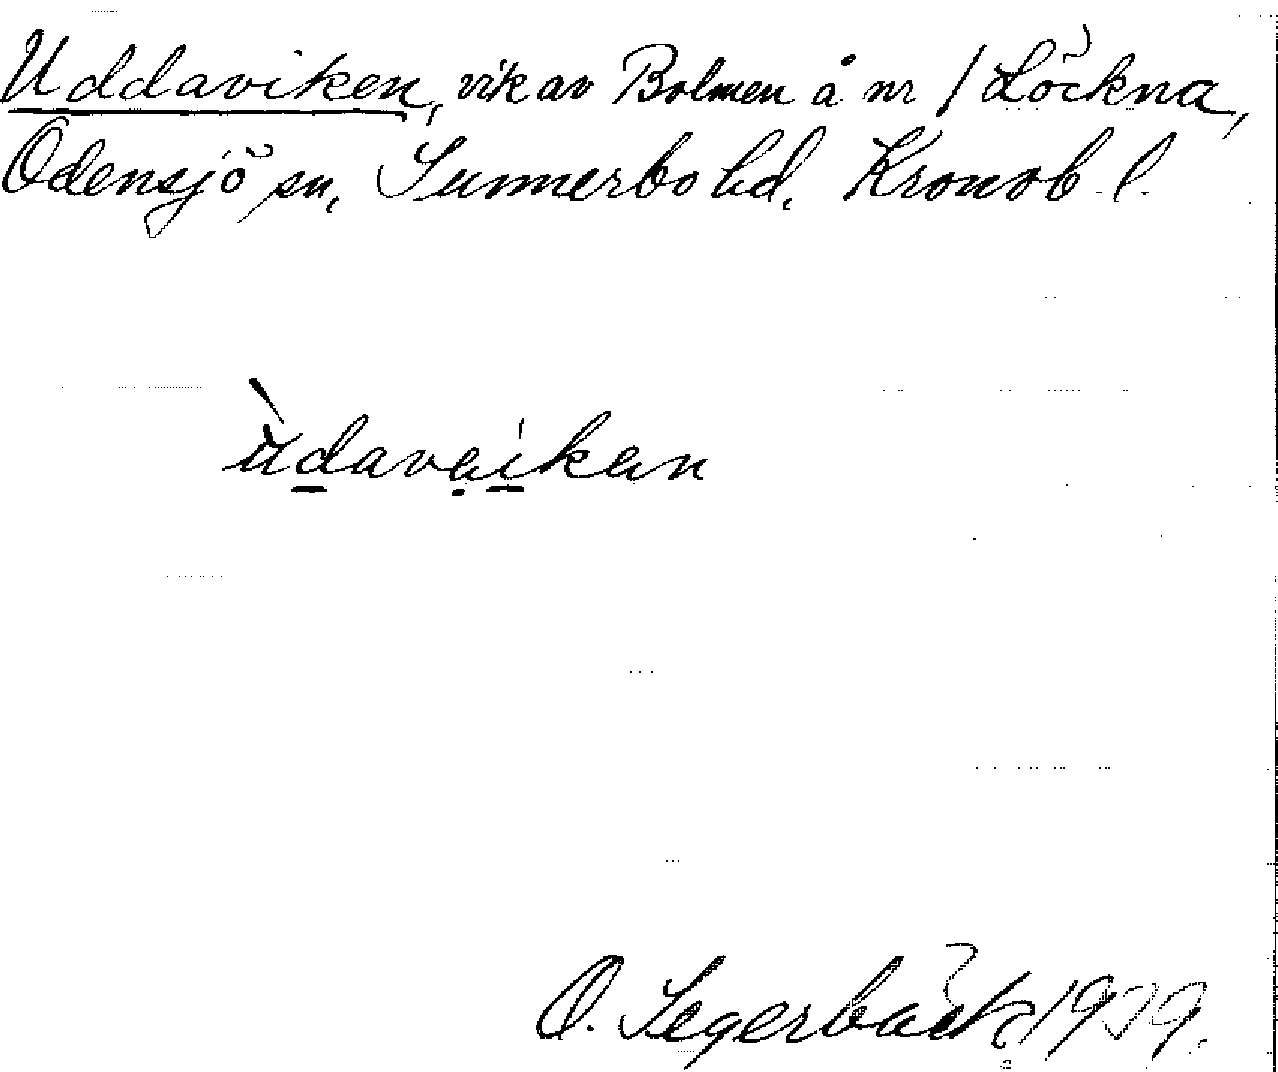 Uddaviken, vik av Bolmen å nr 1 Löckna,
Odensjö sn, Sunnerbo hd. Kronob. l.
ùdavaikan
O. Segerbäck 1939.